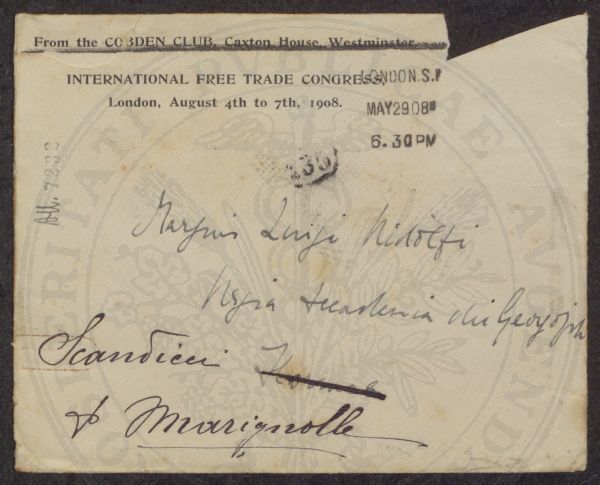 From the COBDEN CLUB, Caxton House, Westminster.
INTERNATIONAL FREE TRADE CONGRESS,
London, August 4th to 7th, 1908.
LONDON.S.
MAY2908
6.30PM
Luigi Ridolfi
Regia Accademia dei Georgofili
Scandicci
Marignolle